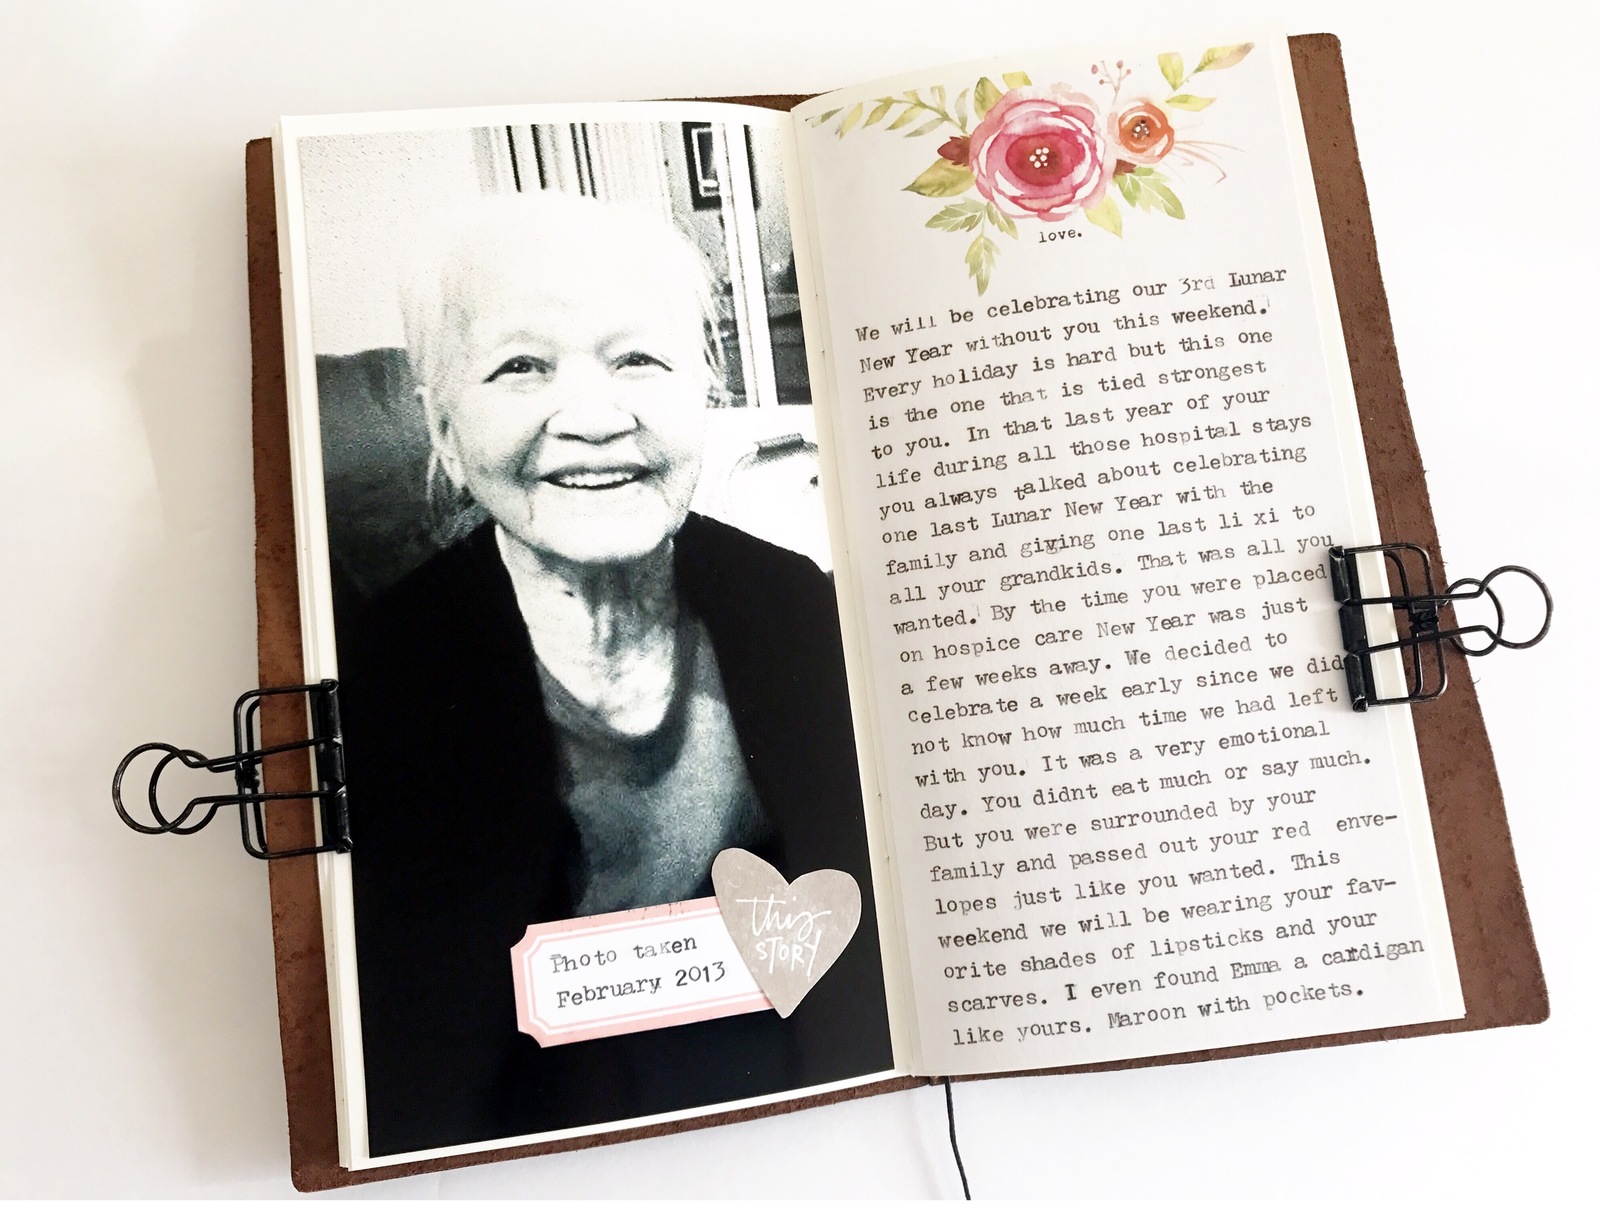 Photo taken
February 2013
this
STORY
love.
We will be celebrating our 3rd Lunar
New Year without you this weekend.
Every holiday is hard but this one
is the one that is tied strongest
to you. In that last year of your
life during all those hospital stays
you always talked about celebrating
one last Lunar New Year with the
family and giving one last li xi to
all your grandkids. That was all you
wanted. By the time you were placed
on hospice care New Year was just
a few weeks away. We decided to
celebrate a week early since we did
not know how much time we had left
with you. It was a very emotional
day. You didnt eat much or say much.
But you were surrounded by your
family and passed out your red enve-
lopes just like you wanted. This
weekend we will be wearing your fav-
orite shades of lipsticks and your
scarves. I even found Emma a cardigan
like yours. Maroon with pockets.